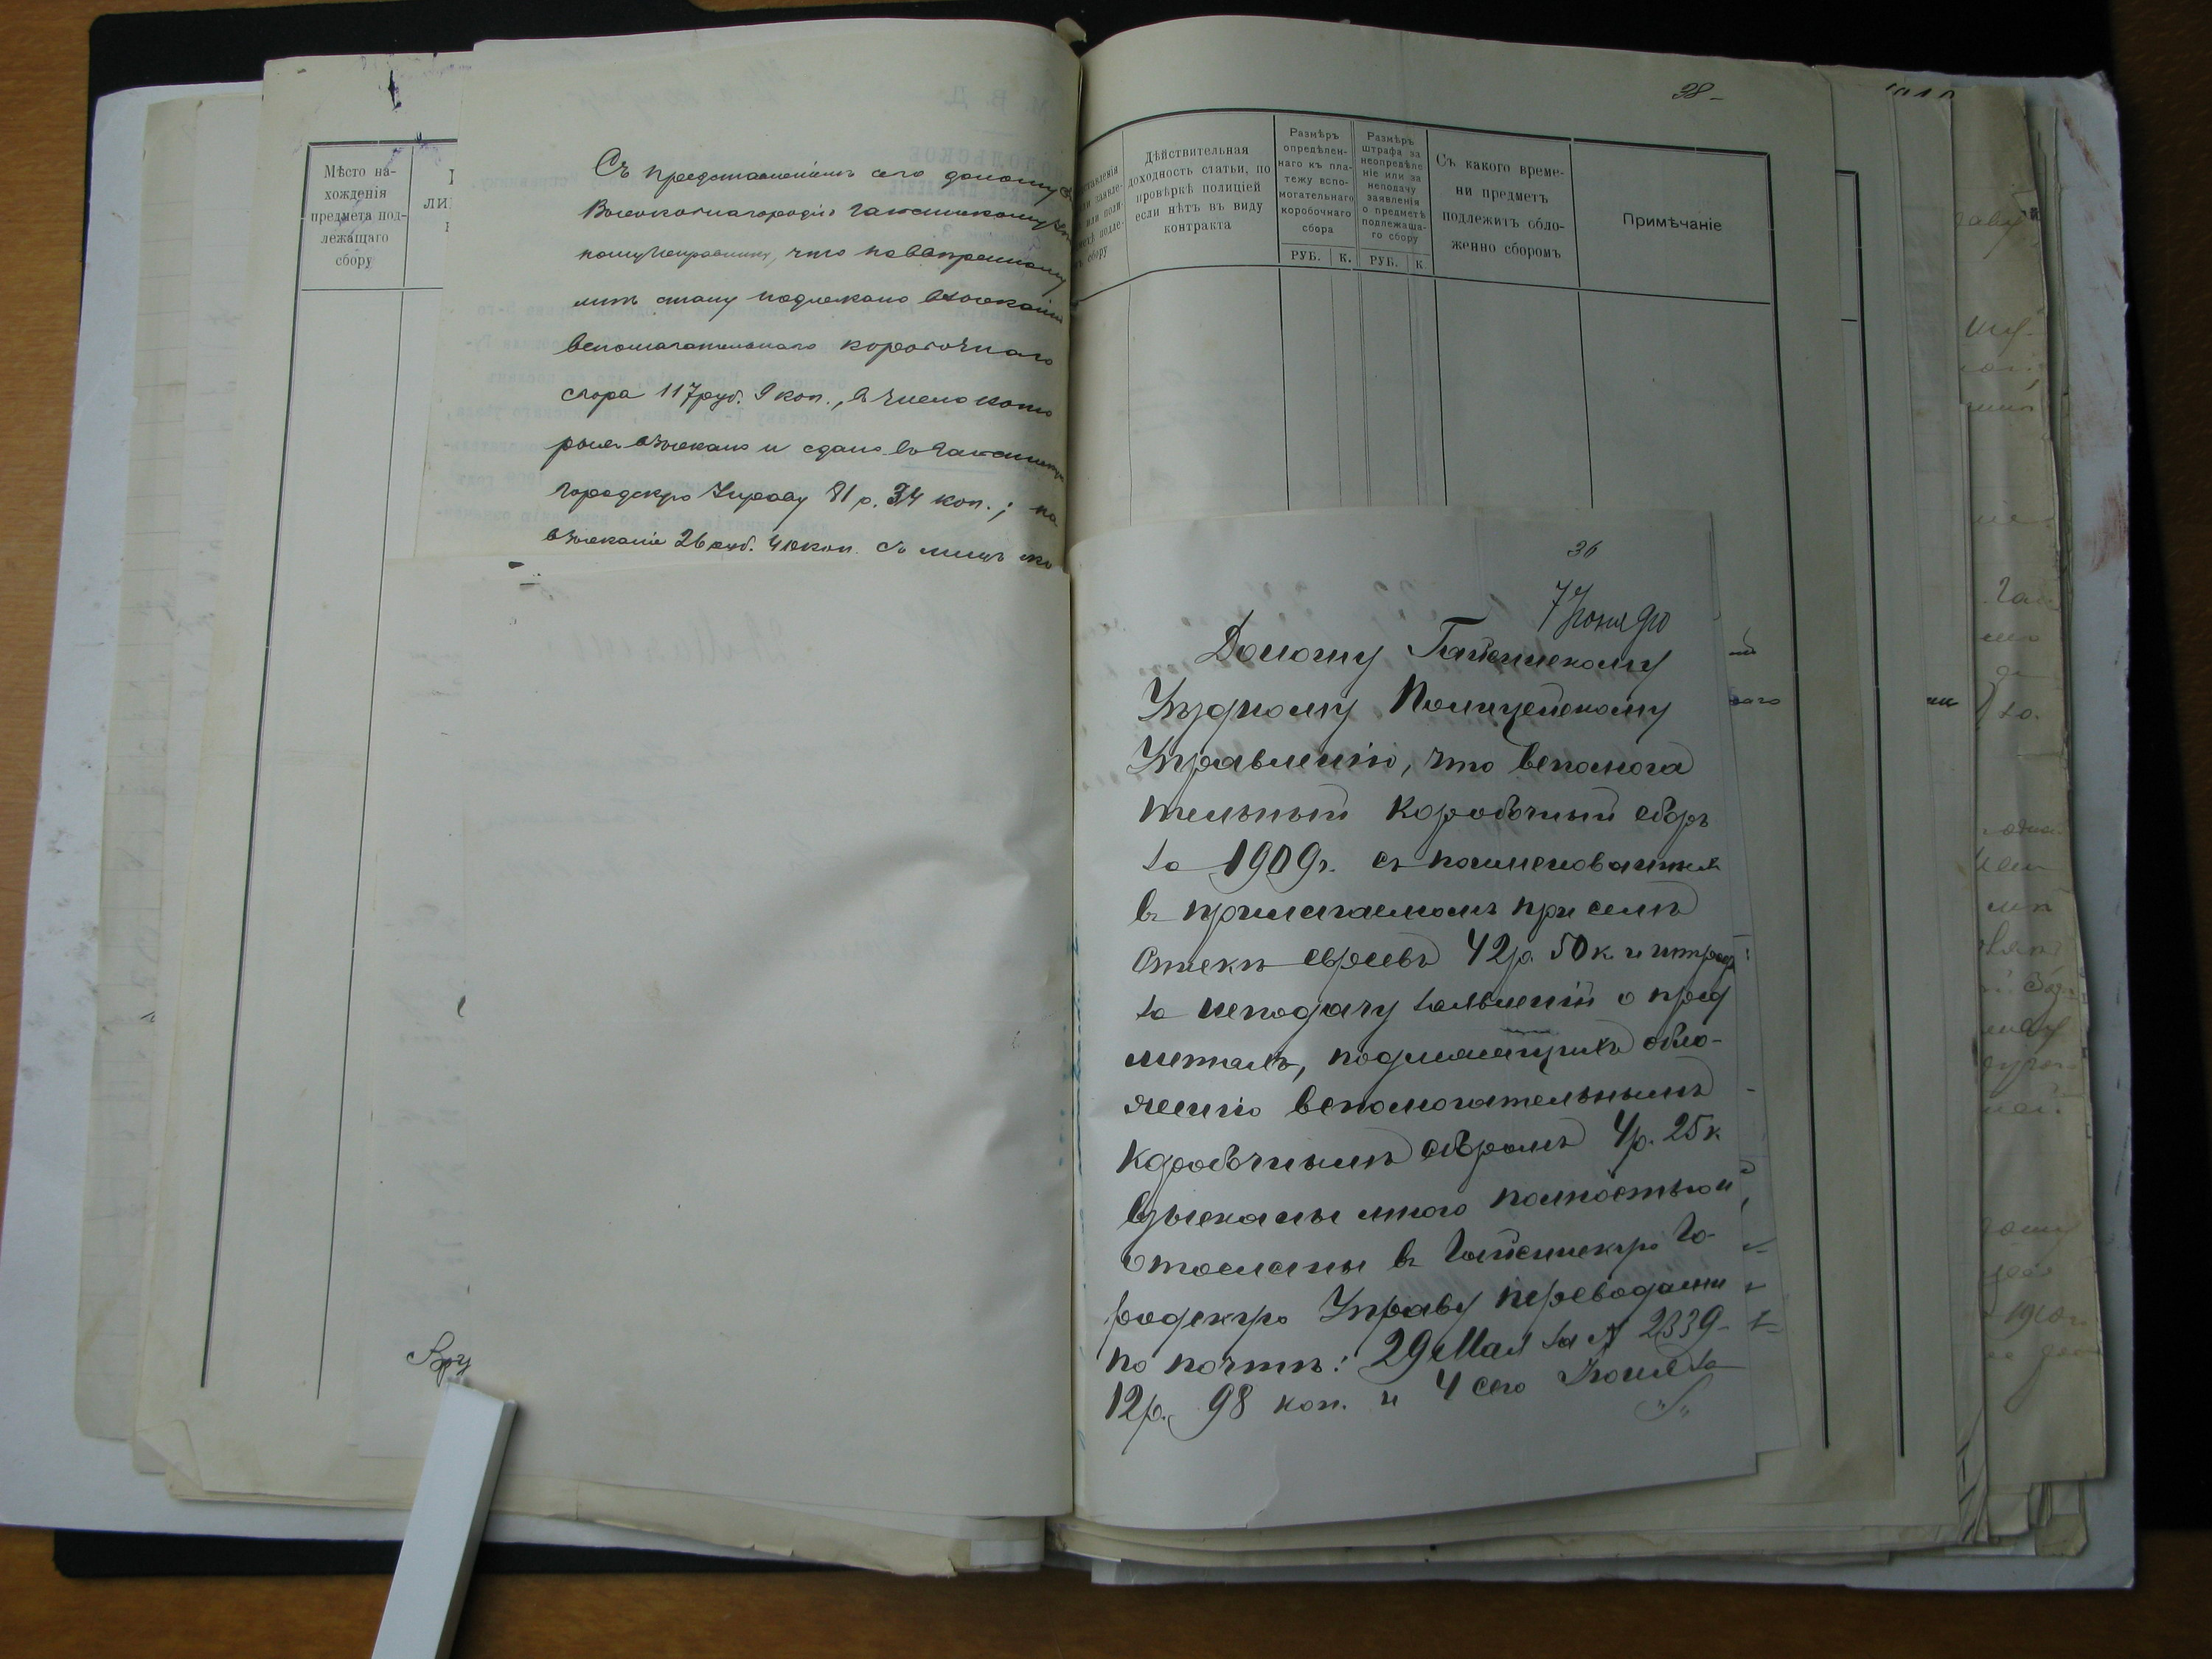 Мѣсто на-
хожденія
предмета под-
лежащаго
сбору
Съ представленіемъ сего доношу
Высокоблагородію Гайсинскому
ному Исправнику, что по ввѣренному
мнѣ стану подлежало взысканію
вспомогательнаго коробочнаго
сбора 117 руб. 9 коп., въ число кото
рыхъ взыскано и сдано въ Гайсинскую
Городскую Управу 81 р. 34 коп.; на
взысканіе 26 руб. 40 коп. съ лицъ
38-
Дѣйствительная
доходность статьи, по
провѣркѣ полиціей
если нѣтъ въ виду
контракта
Размѣръ
опредѣлен-
наго къ пла-
тежу вспо-
могательнаго
коробочнаго
сбора
РУБ. К.
Размѣръ
штрафа за
неопредѣле
ніе или за
неподачу
заявленія
о предметѣ
подлежаща-
го сбору
РУБ. К
Съ какого време-
ни предметъ
подлежитъ обло-
женно сборомъ
Примѣчаніе
36
7 Іюня 910
Доношу Гайсинскому
Уѣздному Полицейскому
Управленію, что вспомога
тельный коробочный сборъ
за 1909 г. съ поименованныхъ
въ прилагаемомъ при семъ
спискѣ евреевъ 42 р. 50 к. и штрафъ
за неподачу заявленій о пред
метахъ, подлежащихъ обло-
женію вспомогательнымъ
коробочнымъ сборомъ 4 р. 25 к.
взысканы мною полностью и
отосланы въ Гайсинскую Го-
родскую Управу переводами
по почтѣ: 29 Мая за № 2339-
12 р. 98 коп. и 4 сего Іюня за